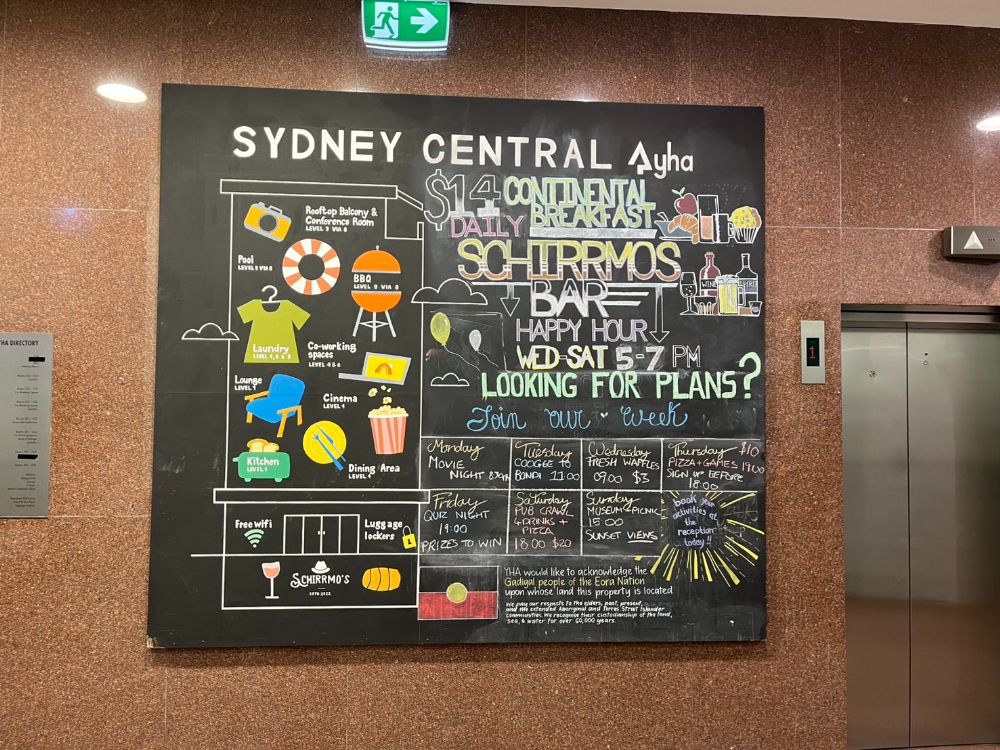 SYDNEY CENTRAL Ayha
Rooftop Balcony &
Conference Room
LEVEL 9 VIA 8
Pool
LEVEL 9 VIA 8
BBQ
LEVEL 9 VIA 8
Laundry
LEVEL 4, 6 & 8
Co-working
spaces
LEVEL 4 & 6
Lounge
LEVEL 1
Cinema
LEVEL 1
Kitchen
LEVEL 1
Dining Area
LEVEL 1
Free wifi
Luggage
lockers
SCHIRRMO'S
ESTD 2022
$14 CONTINENTAL
BREAKFAST
DAILY
SCHIRRMOS
BAR
WINE
HAPPY HOUR
WED-SAT 5-7 PM
LOOKING FOR PLANS?
Join our week
Monday
MOVIE
NIGHT 8:30PM
Tuesday
COOGEE TO
BONDI 11:00
Wednesday
FRESH WAFFLES
09:00 $3
Thursday $10
PIZZA+GAMES 19:00
SIGN UP BEFORE
18:00
Friday
QUIZ NIGHT
19:00
PRIZES TO WIN
Saturday
PUB CRAWL
4 DRINKS +
PIZZA
18:00 $20
Sunday
MUSEUM+PICNIC
15:00
SUNSET VIEWS
book your
activities at
the
reception
today!!
YHA would like to acknowledge the
Gadigal people of the Eora Nation
upon whose land this property is located
We pay our respects to the elders, past, present,
and the extended Aboriginal and Torres Strait Islander
communities. We recognise their custodianship of the land,
sea, & water for over 60,000 years.
YHA DIRECTORY